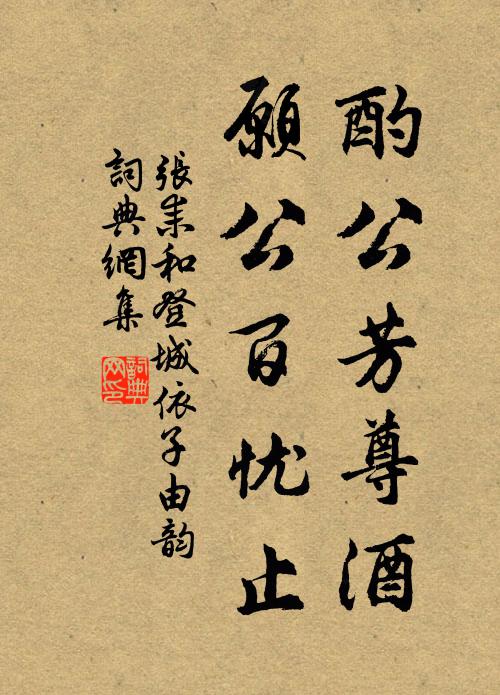 酌公芳尊酒
願公百忧止
張耒和登城依子由韵
詞典網集
詞典网印